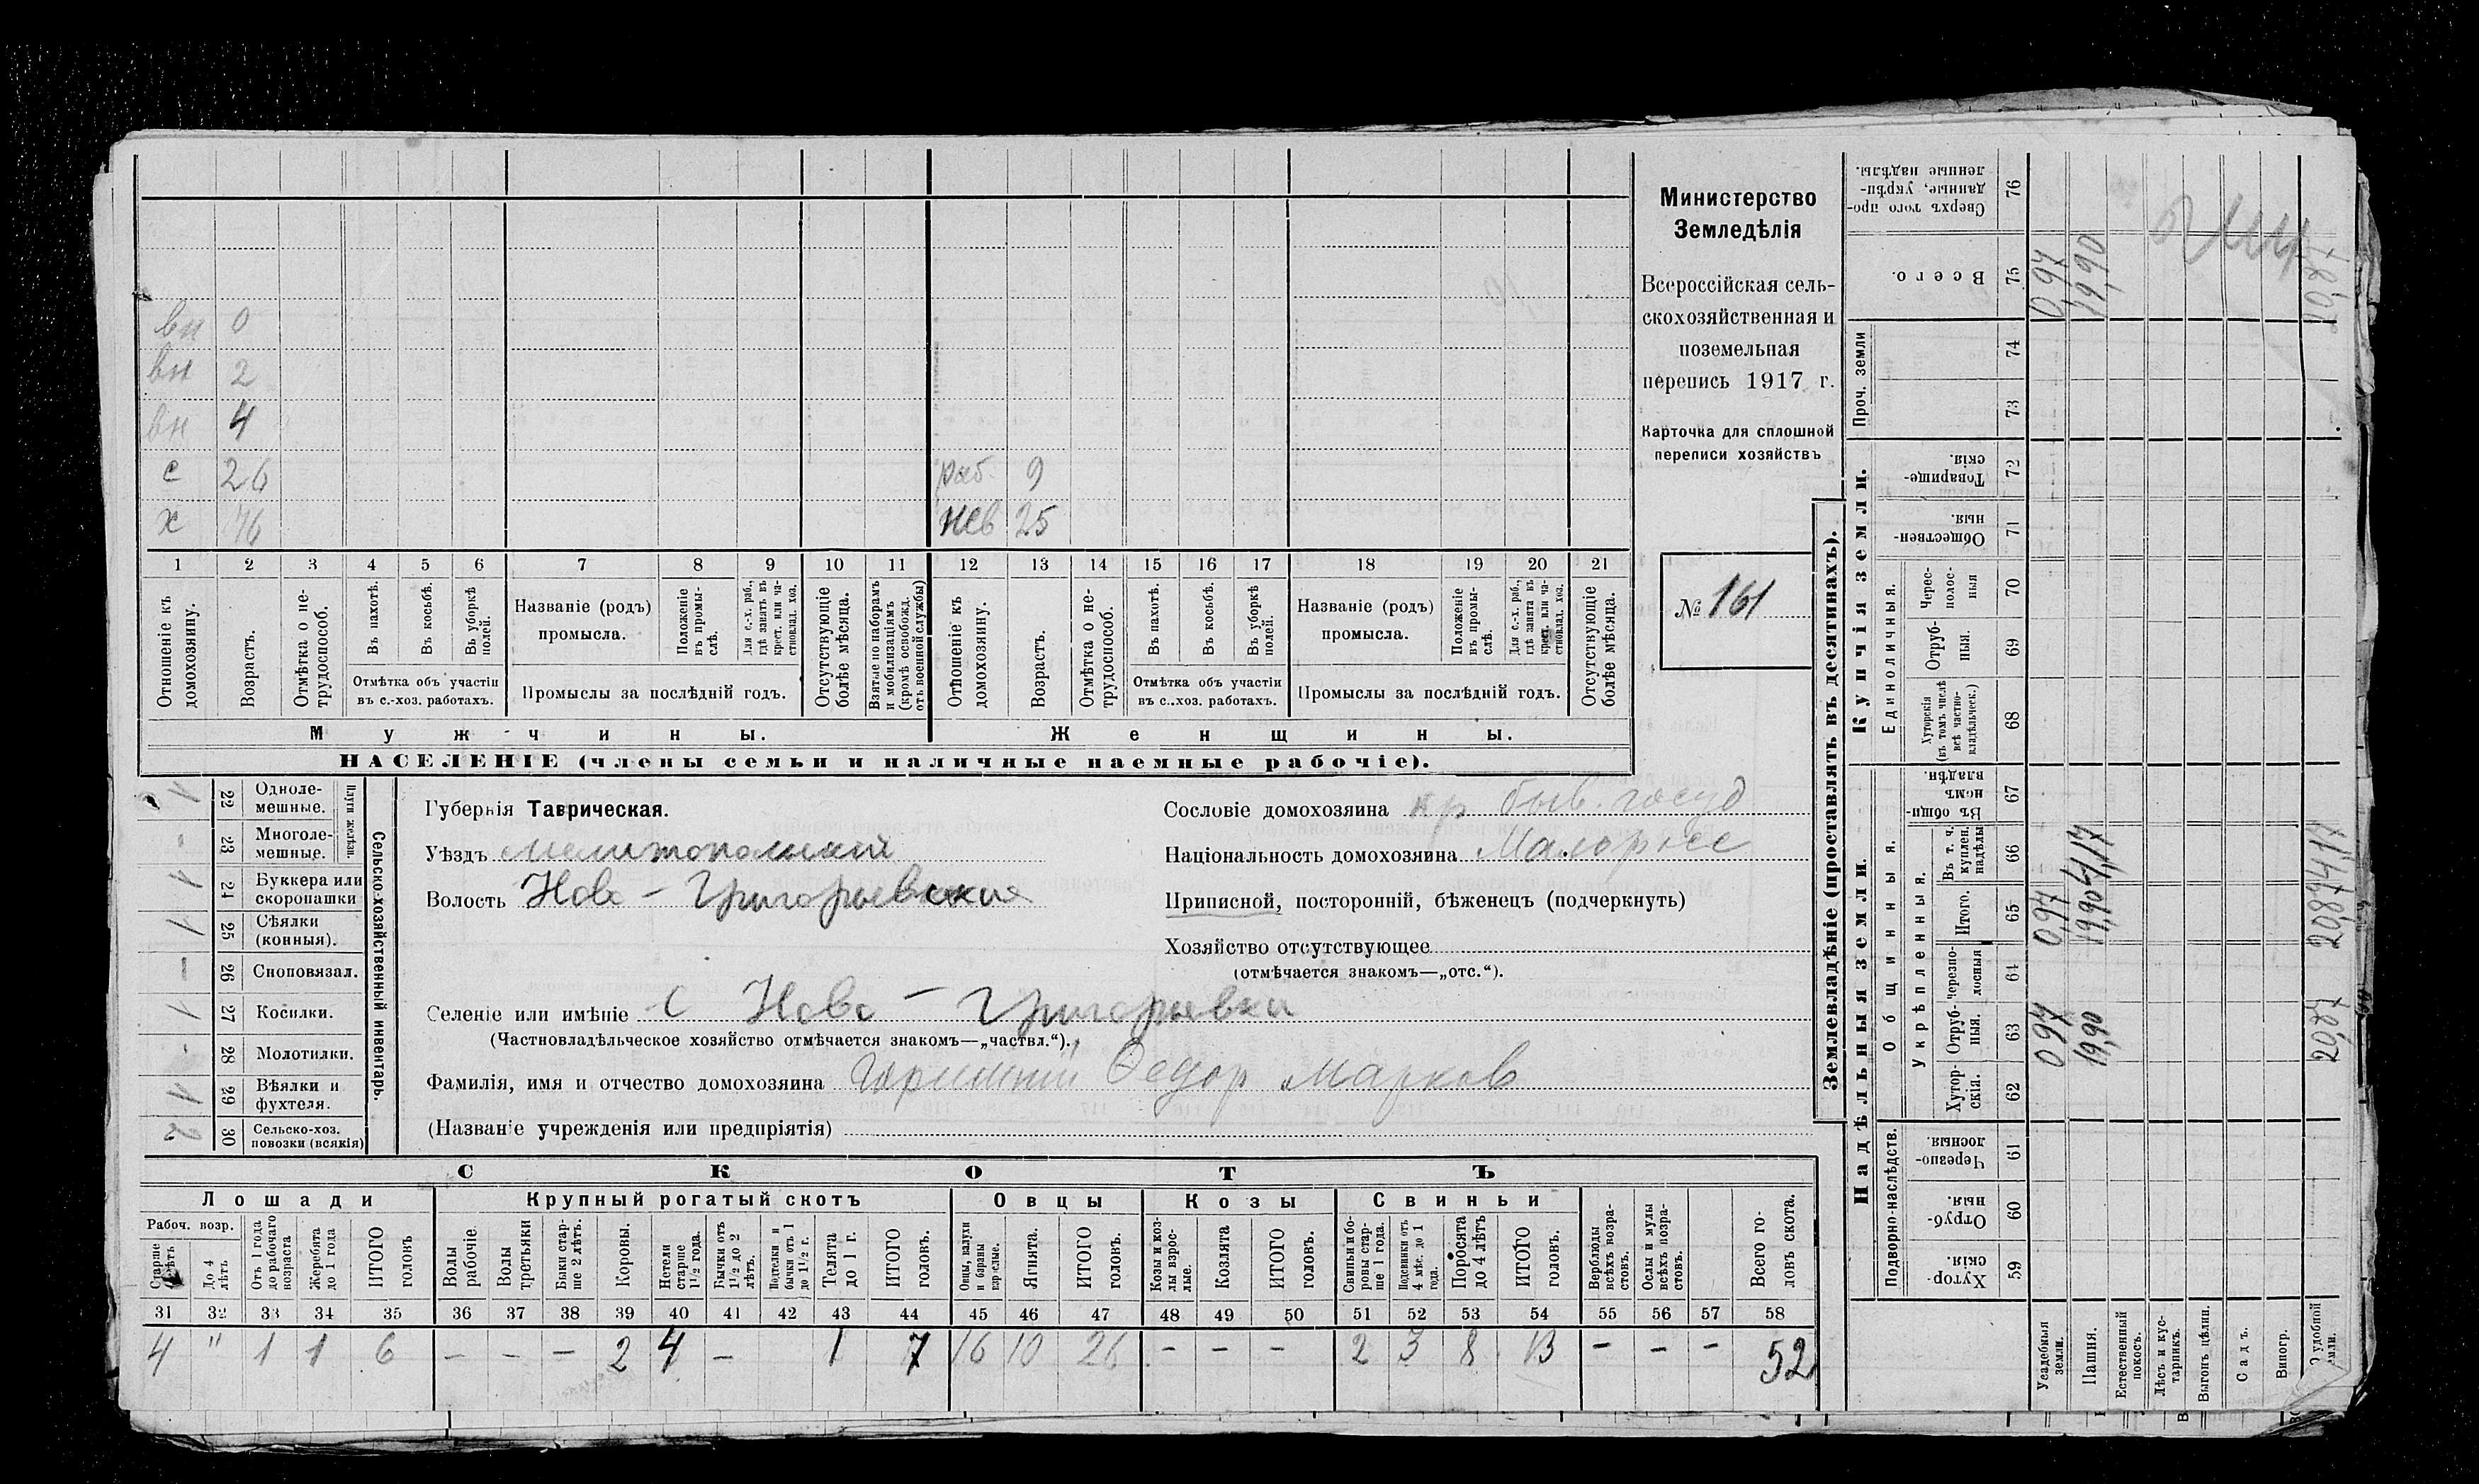 вн 0
вн 2
вн 4
с 26 раб. 9
х 76 нев 25
1 2 3 4 5 6 7 8 9 10 11 12 13 14 15 16 17 18 19 20 21
Отношеніе къ домохозяину.
Возрастъ.
Отмѣтка о нетрудоспособ.
Въ пахотѣ.
Въ косьбѣ.
Въ уборкѣ полей.
Отмѣтка объ участіи въ с.-хоз. работахъ.
Названіе (родъ) промысла.
Положеніе въ промыслѣ.
Для с.-х. раб., гдѣ занятъ въ крест. или частновлад. хоз.
Промыслы за послѣдній годъ.
Отсутствующіе болѣе мѣсяца.
Взятые по наборамъ и мобилизаціямъ (кромѣ освобожд. отъ военной службы)
Отношеніе къ домохозяину.
Возрастъ.
Отмѣтка о нетрудоспособ.
Въ пахотѣ.
Въ косьбѣ.
Въ уборкѣ полей.
Отмѣтка объ участіи въ с.-хоз. работахъ.
Названіе (родъ) промысла.
Положеніе въ промыслѣ.
Для с.-х. раб., гдѣ занята въ крест. или частновлад. хоз.
Промыслы за послѣдній годъ.
Отсутствующіе болѣе мѣсяца.
Мужчины. Женщины.
НАСЕЛЕНІЕ (члены семьи и наличные наемные рабочіе).
Министерство
Земледѣлія
Всероссійская сель-
скохозяйственная и
поземельная
перепись 1917 г.
Карточка для сплошной
переписи хозяйствъ
№ 161
Сельско-хозяйственный инвентарь.
Плуги желѣзн.
1 22 Одноле-мешные.
- 23 Многоле-мешные.
1 24 Буккера или скоропашки
1 25 Сѣялки (конныя).
— 26 Сноповязал.
1 27 Косилки.
- 28 Молотилки.
1 29 Вѣялки и фухтеля.
2 30 Сельско-хоз. повозки (всякія)
Губернія Таврическая.
Уѣздъ Мелитопольский
Волость Ново-Григорьевская
Селеніе или имѣніе с Ново-Григорьевка
(Частновладѣльческое хозяйство отмѣчается знакомъ—„частвл.“).
Фамилія, имя и отчество домохозяина Федор Марков
(Названіе учрежденія или предпріятія)
Сословіе домохозяина кр быв. госуд
Національность домохозяина Малоросс
Приписной, посторонній, бѣженецъ (подчеркнуть)
Хозяйство отсутствующее
(отмѣчается знакомъ—„отс.“).
СКОТЪ
Лошади Крупный рогатый скотъ Овцы Козы Свиньи
Рабоч. возр.
Старше лѣтъ
До 4 лѣтъ
Отъ 1 года до рабочаго возраста
Жеребята до 1 года
ИТОГО головъ
Волы рабочіе
Волы третьяки
Быки старше 2 лѣтъ.
Коровы.
Нетели старше 1½ года.
Бычки отъ 1½ до 2 лѣтъ.
Подтелки и бычки отъ 1 до 1½ г.
Телята до 1 г.
ИТОГО головъ.
Овцы, валухи и бараны взрослые.
Ягнята.
ИТОГО головъ.
Козы и козлы взрослые.
Козлята
ИТОГО головъ.
Свиньи и боровы старше 1 года.
Подсвинки отъ 4 мѣс. до 1 года.
Поросята до 4 лѣтъ
ИТОГО головъ.
Верблюды всѣхъ возрастовъ.
Ослы и мулы всѣхъ возрастовъ.
Всего головъ скота.
31 32 33 34 35 36 37 38 39 40 41 42 43 44 45 46 47 48 49 50 51 52 53 54 55 56 57 58
4 " 1 1 6 — - — 2 4 — 1 7 16 10 26 - - - 2 3 8 13 - - - 52
Землевладѣніе (проставлять въ десятинахъ).
Купчія земли.
Надѣльныя земли.
Сверхъ того проданные, укрѣпленные надѣлы. 76
Всего. 75 0,97 19,90 20,87
Проч. земли 74 73
Товарищескія. 72
Общественныя. 71
Единоличныя.
Чересполосныя 70
Отрубныя. 69
Хуторскія (въ томъ числѣ всѣ частновладѣльческ.) 68
Общинныя.
Въ общинномъ владѣн. 67
Укрѣпленныя.
Въ т. ч. куплен. надѣлы 66 4,17 4,17
Итого. 65 0,97 19,90 20,87
Черезполосныя 64
Отрубныя. 63 0 97 19,90 20,87
Хуторскія. 62
Подворно-наслѣдств.
Черезполосныя. 61
Отрубныя. 60
Хуторскія. 59
Усадебныя земли.
Пашня.
Естественный покосъ.
Лѣсъ и кустарникъ.
Выгонъ цѣлин.
Садъ.
Виногр.
удобной земли.